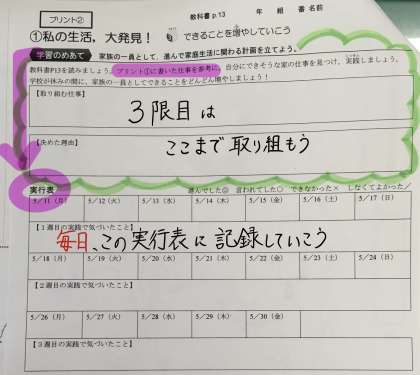 プリント②
教科書 p.13 年 組 番 名前
①私の生活，大発見！ できることを増やしていこう
学習のめあて 家族の一員として，進んで家庭生活に関わる計画を立てよう。
教科書P13を読みましょう。プリント①に書いた仕事を参考に，自分にできそうな家の仕事を見つけ，実践しましょう。
学校が休みの間に，家族の一員としてできることをどんどん増やしましょう！
【取り組む仕事】
3限目は
【決めた理由】
ここまで取り組もう
実行表 進んでした◎ 言われてした○ できなかった× しなくてよかった／
5/11（月） 5/12（火） 5/13（水） 5/14（木） 5/15（金） 5/16（土） 5/17（日）
【1週目の実践で気づいたこと】
毎日、この実行表に記録していこう
5/18（月） 5/19（火） 5/20（水） 5/21（木） 5/22（金） 5/23（土） 5/24（日）
【2週目の実践で気づいたこと】
5/26（月） 5/27（火） 5/28（水） 5/29（木） 5/30（金）
【3週目の実践で気づいたこと】